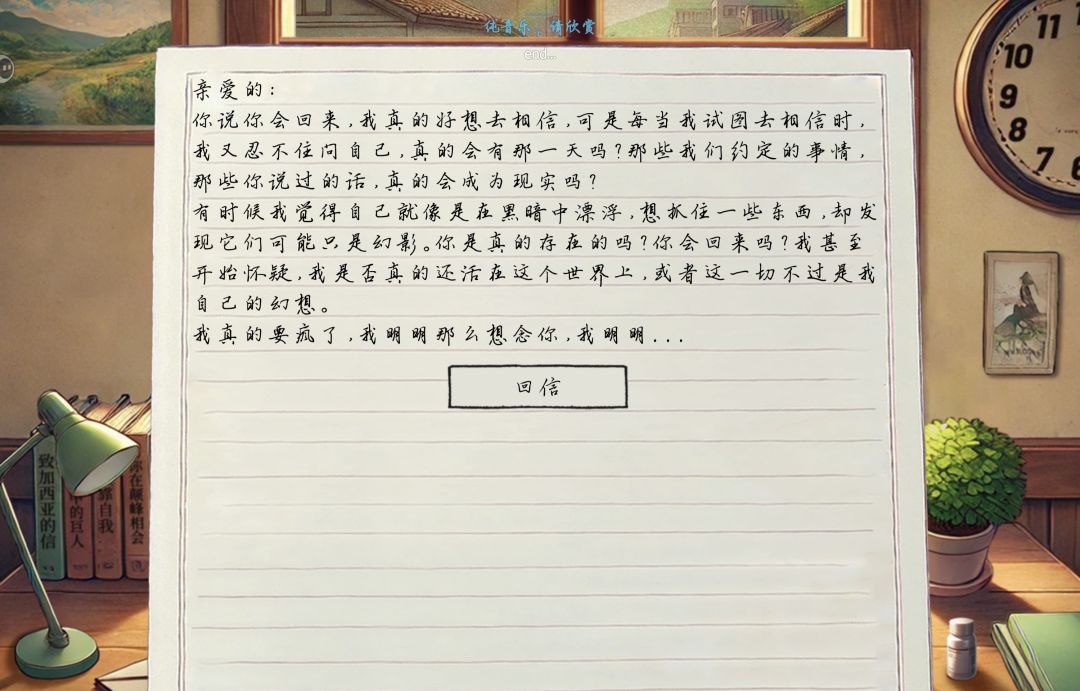 纯音乐，请欣赏
end...
亲爱的：
你说你会回来,我真的好想去相信,可是每当我试图去相信时,
我又忍不住问自己,真的会有那一天吗?那些我们约定的事情,
那些你说过的话,真的会成为现实吗?
有时候我觉得自己就像是在黑暗中漂浮,想抓住一些东西,却发
现它们可能只是幻影。你是真的存在的吗?你会回来吗?我甚至
开始怀疑,我是否真的还活在这个世界上,或者这一切不过是我
自己的幻想。
我真的要疯了,我明明那么想念你,我明明...
回信
11
10
9
8
7
6
致加西亚的信
的巨人
靠自我
你在巅峰相会